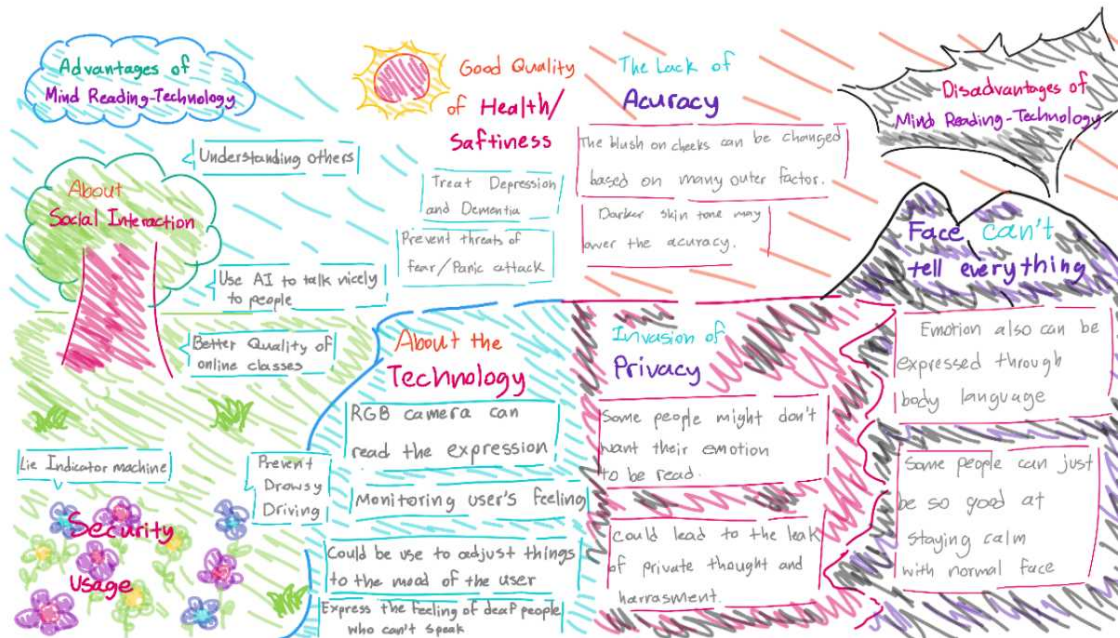 Advantages of
Mind Reading-Technology
Understanding others
About
Social Interaction
Use AI to talk nicely
to people
Better Quality of
online classes
Lie Indicator machine
Prevent
Drowsy
Driving
Security
usage
Good Quality
of Health/
Saftiness
Treat Depression
and Dementia
Prevent threats of
fear/Panic attack
About the
Technology
RGB camera can
read the expression
Monitoring user's feeling
Could be use to adjust things
to the mood of the user
Express the feeling of deaf people
who can't speak
The Lack of
Acuracy
The blush on cheeks can be changed
based on many outer factor.
Darker skin tone may
lower the acuracy.
Invasion of
Privacy
Some people might don't
want their emotion
to be read.
Could lead to the leak
of private thought and
harrasment.
Disadvantages of
Mind Reading-Technology
Face can't
tell everything
Emotion also can be
expressed through
body language
Some people can just
be so good at
staying calm
with normal face